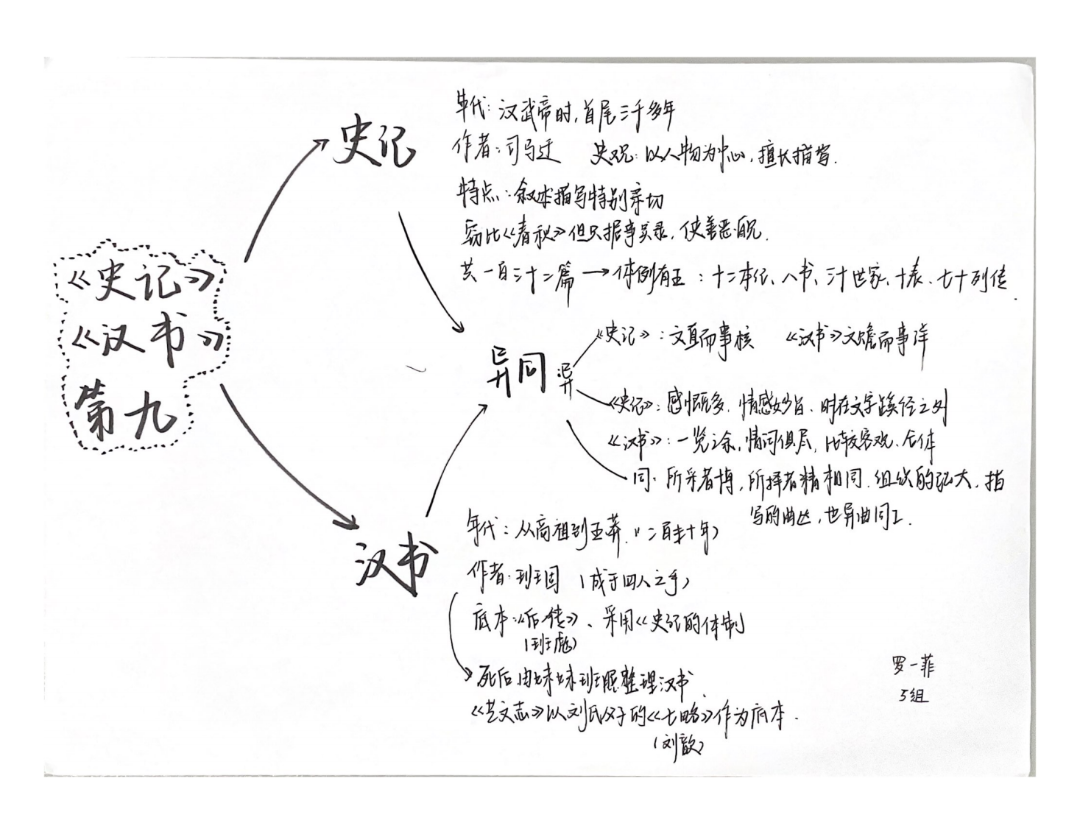 《史记》
《汉书》
第九
史记
年代：汉武帝时，首尾三千多年
作者：司马迁 史观：以人物为中心，擅长描写.
特点：叙述描写特别亲切
窃比《春秋》但只据事实录，使善恶自见.
共一百三十二篇→体例有五：十二本纪、八书、三十世家、十表、七十列传
异同
异
《史记》：文直而事核 《汉书》文赡而事详
《史记》：感慨多，情感妙旨，时在文字蹊径之外
《汉书》：一览之余，情词俱尽，比较客观、合体
同：所采者博，所择者精相同，组织的弘大，描
写的曲达，也异曲同工.
汉书
年代：从高祖到王莽.（二百三十年）
作者：班固（成于四人之手）
底本：《后传》、采用《史记的体制
（班彪）
死后由妹妹班昭整理汉书.
《艺文志》以刘氏父子的《七略》作为底本.
（刘歆）
罗一菲
5组